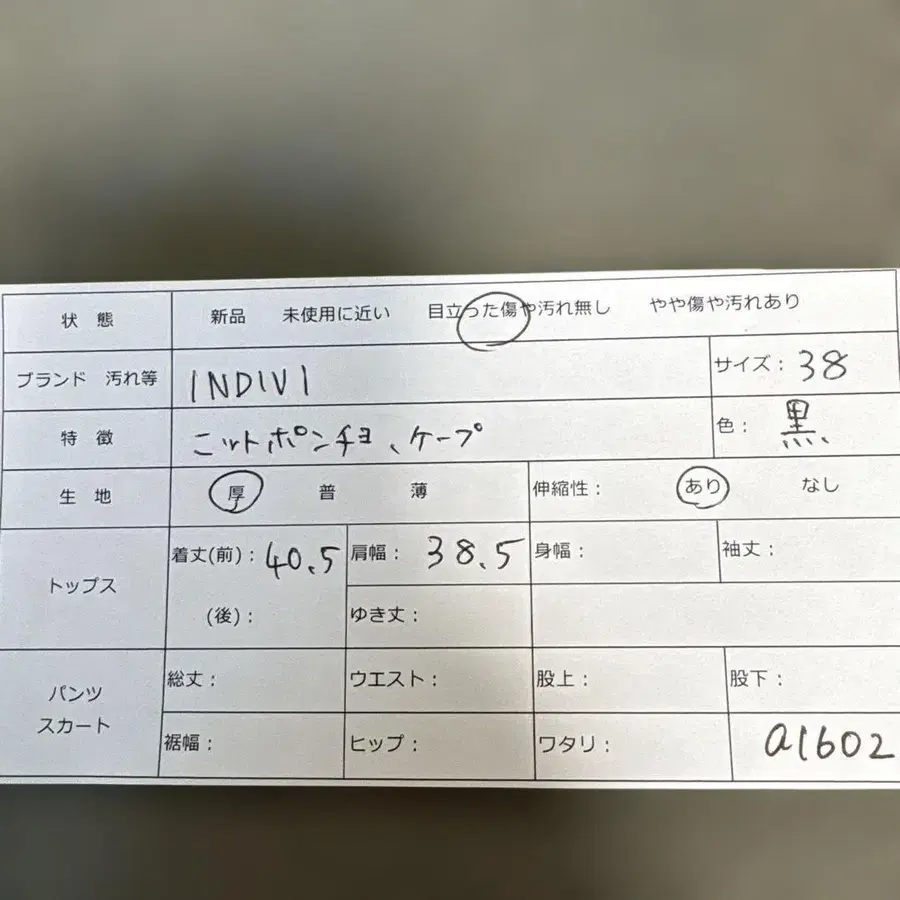 状 態 新品 未使用に近い 目立った傷や汚れ無し やや傷や汚れあり
ブランド 汚れ等 INDIVI サイズ: 38
特 徴 ニットポンチョ、ケープ 色: 黒
生 地 厚 普 薄 伸縮性: あり なし
トップス 着丈(前): 40.5 肩幅: 38.5 身幅: 袖丈:
(後): ゆき丈:
パンツ スカート 総丈: ウエスト: 股上: 股下:
裾幅: ヒップ: ワタリ: a1602